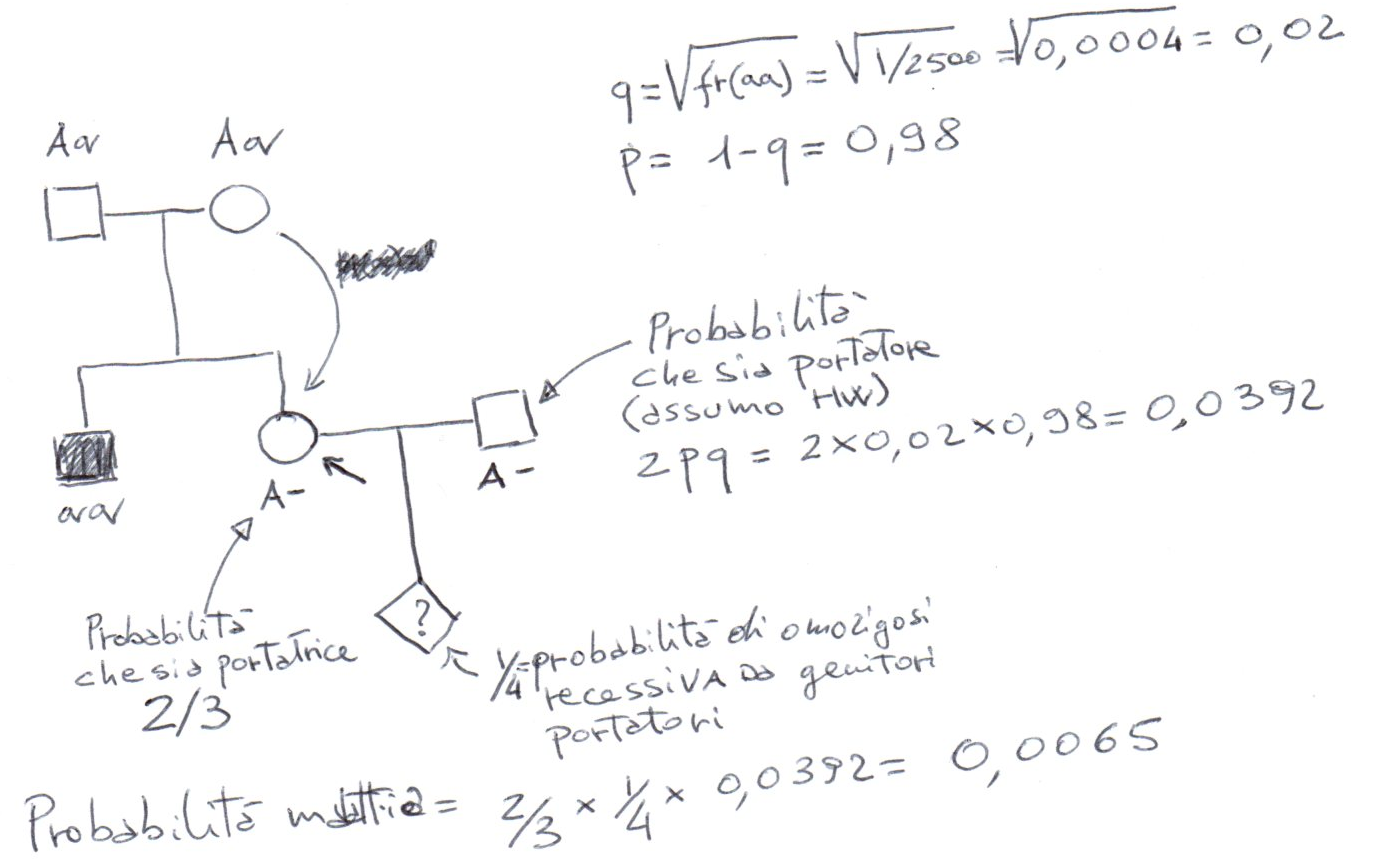 q=√fr(aa) = √1/2500 = √0,0004 = 0,02
p= 1-q = 0,98
Aa Aa
Probabilità
che sia portatore
(assumo HW)
2pq = 2×0,02×0,98 = 0,0392
A-
A-
aa
?
Probabilità
che sia portatrice
2/3
1/4=probabilità di omozigosi
recessiva da genitori
portatori
Probabilità malattia = 2/3 × 1/4 × 0,0392 = 0,0065